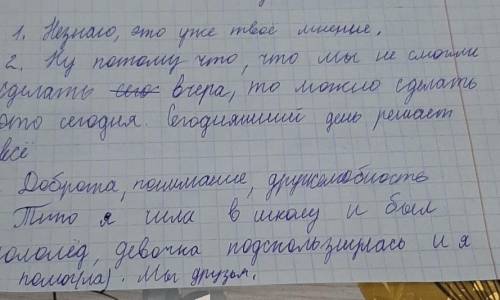 1. Незнаю, это уже твоё мнение.
2. Ну потому что, что мы не смогли
сделать его вчера, то можно сделать
это сегодня. Сегодняшний день решает
всё
Доброта, понимание, дружелюбность
Типо я шла в школу и был
гололёд, девочка подспользнулась и я
помог(ла). Мы друзья.